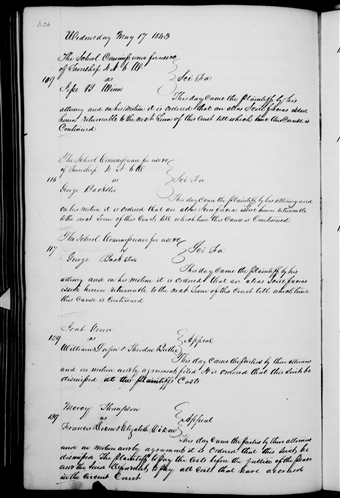 Wednesday May 17 1843
The School Commissioner for use
of Township
109 vs Sci Fa
This day Came the plaintiff by his
attorney and on his Motion it is ordered that an alias Scire facias issue
herein returnable to the next Term of this Court till which time this Cause is
Continued
The School Commissioner for use
of Township
116 vs Sci Fa
George Backster
This day Came the plaintiff by his attorney and
on his motion it is ordered that an alias Scire facias issue herein returnable
to the next Term of this Court till which time this Cause is Continued
The School Commissioner for use
117 vs Sci Fa
George Backster
This day Came the plaintiff by his
attorney and on his Motion it is ordered that an alias Scire facias
issue herein returnable to the next Term of this Court till which time
this Cause is Continued
129 vs Appeal
William &amp; Theodore
This day Came the parties by their attornies
and on motion and by agreement filed it is ordered that this suit be
dismissed at the plaintiffs Costs
Mercy Thompson
139 vs Appeal
Francis &amp; Elizabeth
This day Came the parties by their attornies
and on motion and by agreement it is ordered that this suit be
dismissed The plaintiff to pay the Costs before the Justice of the peace
and the Defendants to pay all Cost that have accrued
in the Circuit Court